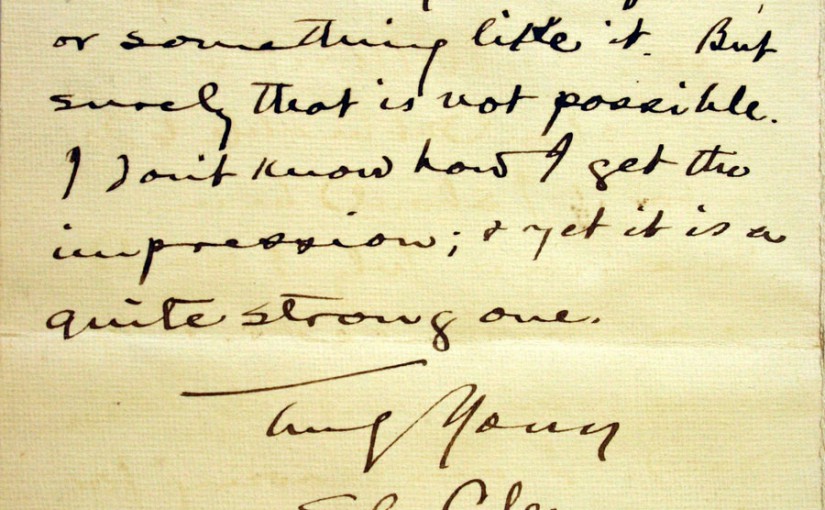 or something like it. But
surely that is not possible.
I don't know how I get the
impression; & yet it is a
quite strong one.
Truly Yours